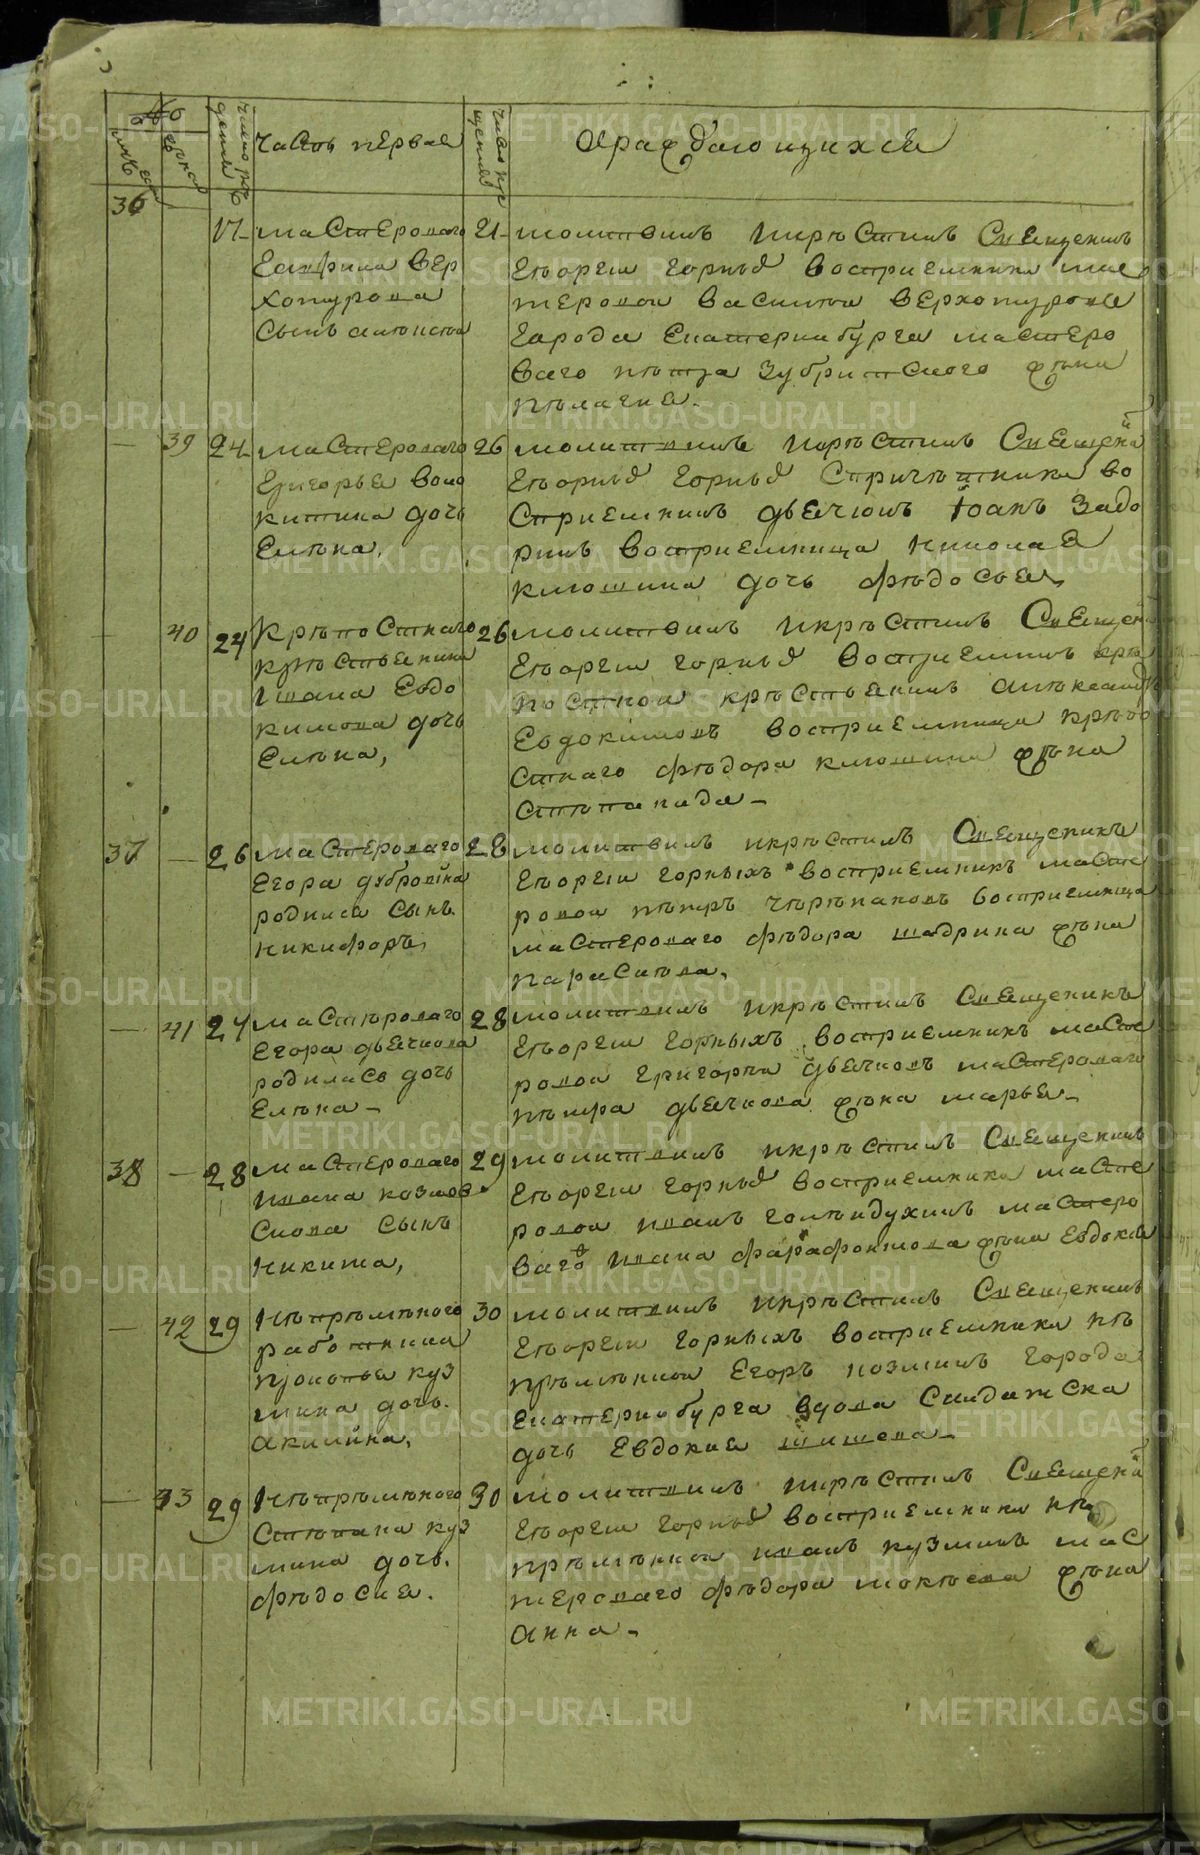 №
часть первая
о раждающихся
36
17
мастероваго
Гаврила Вер
хотурова
сынъ алѣксѣй
21
молитвилъ икрѣстилъ Священикъ
Гѣоргии Горныхъ восприемники мас
теровои Василѣи Верхотуровъ
Города Екатеринбурга мастеро
ваго пѣтра Зубрит жѣна
пѣлагия.
39
24
мастероваго
Григорья воло
китина дочь
Елѣна,
26
молитвилъ икрѣстилъ Священикъ
Гѣоргии Горныхъ Спричѣтники во
сприемникъ дьячокъ Iоанъ Задо
ринъ восприемница николая
клюшина дочь фѣдосья
40
24
Крѣпостнаго
крѣстьянина
Ивана Евдо
кимова дочь
Елѣна,
26
молитвилъ икрѣстилъ Священ
Гѣоргии Горныхъ восприемникъ крѣ
постнои крѣстьянинъ алѣксандръ
Евдокимовъ восприемница крѣпо
стнаго фѣдора клюшина жѣна
стѣпанида
37
26
мастероваго
Егора дубровина
родился сынъ
никифоръ,
28
молитвилъ икрѣстилъ Священикъ
Гѣоргии Горныхъ восприемникъ масте
ровои пѣтръ чѣрѣпановъ восприемница
мастероваго фѣдора шадрина жѣна
параскѣва,
41
27
мастѣроваго
Егора дьячкова
родилась дочь
Елѣна
28
молитвилъ икрѣстилъ Священикъ
Гѣоргии Горныхъ восприемникъ масте
ровои Григорѣи дьячковъ мастероваго
пѣтра дьячкова жѣна марья
38
28
мастероваго
Ивана козлов
скова сынъ
никита,
29
молитвилъ икрѣстилъ Священикъ
Гѣоргии Горныхъ восприемники масте
ровои иванъ голѣндухинъ мастеро
ваго ивана фарафонтова жѣна Евдокия
42
29
нѣпрѣмѣнаго
работника
прокопья куз
мина дочь.
акилина,
30
молитвилъ икрѣстилъ Священикъ
Гѣоргии Горныхъ восприемники нѣ
прѣмѣнои Егоръ козминъ Города
Екатеринбурга вдова Салдатска
дочь Евдокия шишева
43
29
нѣпрѣмѣнаго
Стѣпана куз
мина дочь.
фѣдосия.
30
молитвилъ икрѣстилъ Священикъ
Гѣоргии Горныхъ восприемники нѣ
прѣмѣнои иванъ кузминъ мас
тероваго фѣдора мокѣева жѣна
анна